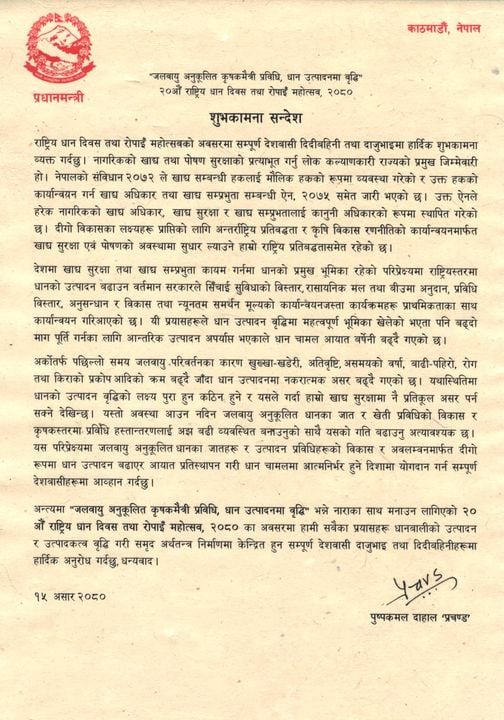 काठमाडौं, नेपाल
प्रधानमन्त्री
"जलवायु अनुकूलित कृषकमैत्री प्रविधि, धान उत्पादनमा वृद्धि"
२०औं राष्ट्रिय धान दिवस तथा रोपाइँ महोत्सव, २०८०
शुभकामना सन्देश
राष्ट्रिय धान दिवस तथा रोपाइँ महोत्सवको अवसरमा सम्पूर्ण देशवासी दिदीबहिनी तथा दाजुभाइमा हार्दिक शुभकामना
व्यक्त गर्दछु। नागरिकको खाद्य तथा पोषण सुरक्षाको प्रत्याभूत गर्नु लोक कल्याणकारी राज्यको प्रमुख जिम्मेवारी
हो। नेपालको संविधान २०७२ ले खाद्य सम्बन्धी हकलाई मौलिक हकको रूपमा व्यवस्था गरेको र उक्त हकको
कार्यान्वयन गर्न खाद्य अधिकार तथा खाद्य सम्प्रभुता सम्बन्धी ऐन, २०७५ समेत जारी भएको छ। उक्त ऐनले
हरेक नागरिकको खाद्य अधिकार, खाद्य सुरक्षा र खाद्य सम्प्रभुतालाई कानुनी अधिकारको रूपमा स्थापित गरेको
छ। दीगो विकासका लक्ष्यहरू प्राप्तिको लागि अन्तर्राष्ट्रिय प्रतिबद्धता र कृषि विकास रणनीतिको कार्यान्वयनमार्फत
खाद्य सुरक्षा एवं पोषणको अवस्थामा सुधार ल्याउने हाम्रो राष्ट्रिय प्रतिबद्धतासमेत रहेको छ।
देशमा खाद्य सुरक्षा तथा खाद्य सम्प्रभुता कायम गर्नमा धानको प्रमुख भूमिका रहेको परिप्रेक्ष्यमा राष्ट्रियस्तरमा
धानको उत्पादन बढाउन वर्तमान सरकारले सिँचाई सुविधाको विस्तार, रासायनिक मल तथा बीउमा अनुदान, प्रविधि
विस्तार, अनुसन्धान र विकास तथा न्यूनतम समर्थन मूल्यको कार्यान्वयनजस्ता कार्यक्रमहरू प्राथमिकताका साथ
कार्यान्वयन गरिआएको छ। यी प्रयासहरूले धान उत्पादन वृद्धिमा महत्वपूर्ण भूमिका खेलेको भएता पनि बढ्दो
माग पूर्ति गर्नका लागि आन्तरिक उत्पादन अपर्याप्त भएकाले धान चामल आयात वर्षेनी बढ्दै गएको छ।
अर्कोतर्फ पछिल्लो समय जलवायु-परिवर्तनका कारण खुख्खा-खडेरी, अतिवृष्टि, असमयको वर्षा, बाढी-पहिरो, रोग
तथा किराको प्रकोप आदिको क्रम बढ्दै जाँदा धान उत्पादनमा नकरात्मक असर बढ्दै गएको छ। यथास्थितिमा
धानको उत्पादन वृद्धिको लक्ष्य पुरा हुन कठिन हुने र यसले गर्दा हाम्रो खाद्य सुरक्षामा नै प्रतिकूल असर पर्न
सक्ने देखिन्छ। यस्तो अवस्था आउन नदिन जलवायु अनुकूलित धानका जात र खेती प्रविधिको विकास र
कृषकस्तरमा प्रविधि हस्तान्तरणलाई अझ बढी व्यवस्थित बनाउनुको साथै यसको गति बढाउनु अत्यावश्यक छ।
यस परिप्रेक्ष्यमा जलवायु अनुकूलित धानका जातहरू र उत्पादन प्रविधिहरूको विकास र अवलम्बनमार्फत दीगो
रूपमा धान उत्पादन बढाएर आयात प्रतिस्थापन गरी धान चामलमा आत्मनिर्भर हुने दिशामा योगदान गर्न सम्पूर्ण
देशवासीहरूमा आव्हान गर्दछु।
अन्त्यमा "जलवायु अनुकूलित कृषकमैत्री प्रविधि, धान उत्पादनमा वृद्धि" भन्ने नाराका साथ मनाउन लागिएको २०
औं राष्ट्रिय धान दिवस तथा रोपाइँ महोत्सव, २०८० का अवसरमा हामी सबैका प्रयासहरू धानबालीको उत्पादन
र उत्पादकत्व वृद्धि गरी समृद्ध अर्थतन्त्र निर्माणमा केन्द्रित हुन सम्पूर्ण देशवासी दाजुभाइ तथा दिदीबहिनीहरूमा
हार्दिक अनुरोध गर्दछु, धन्यवाद।
१५ असार २०८०
पुष्पकमल दाहाल 'प्रचण्ड'